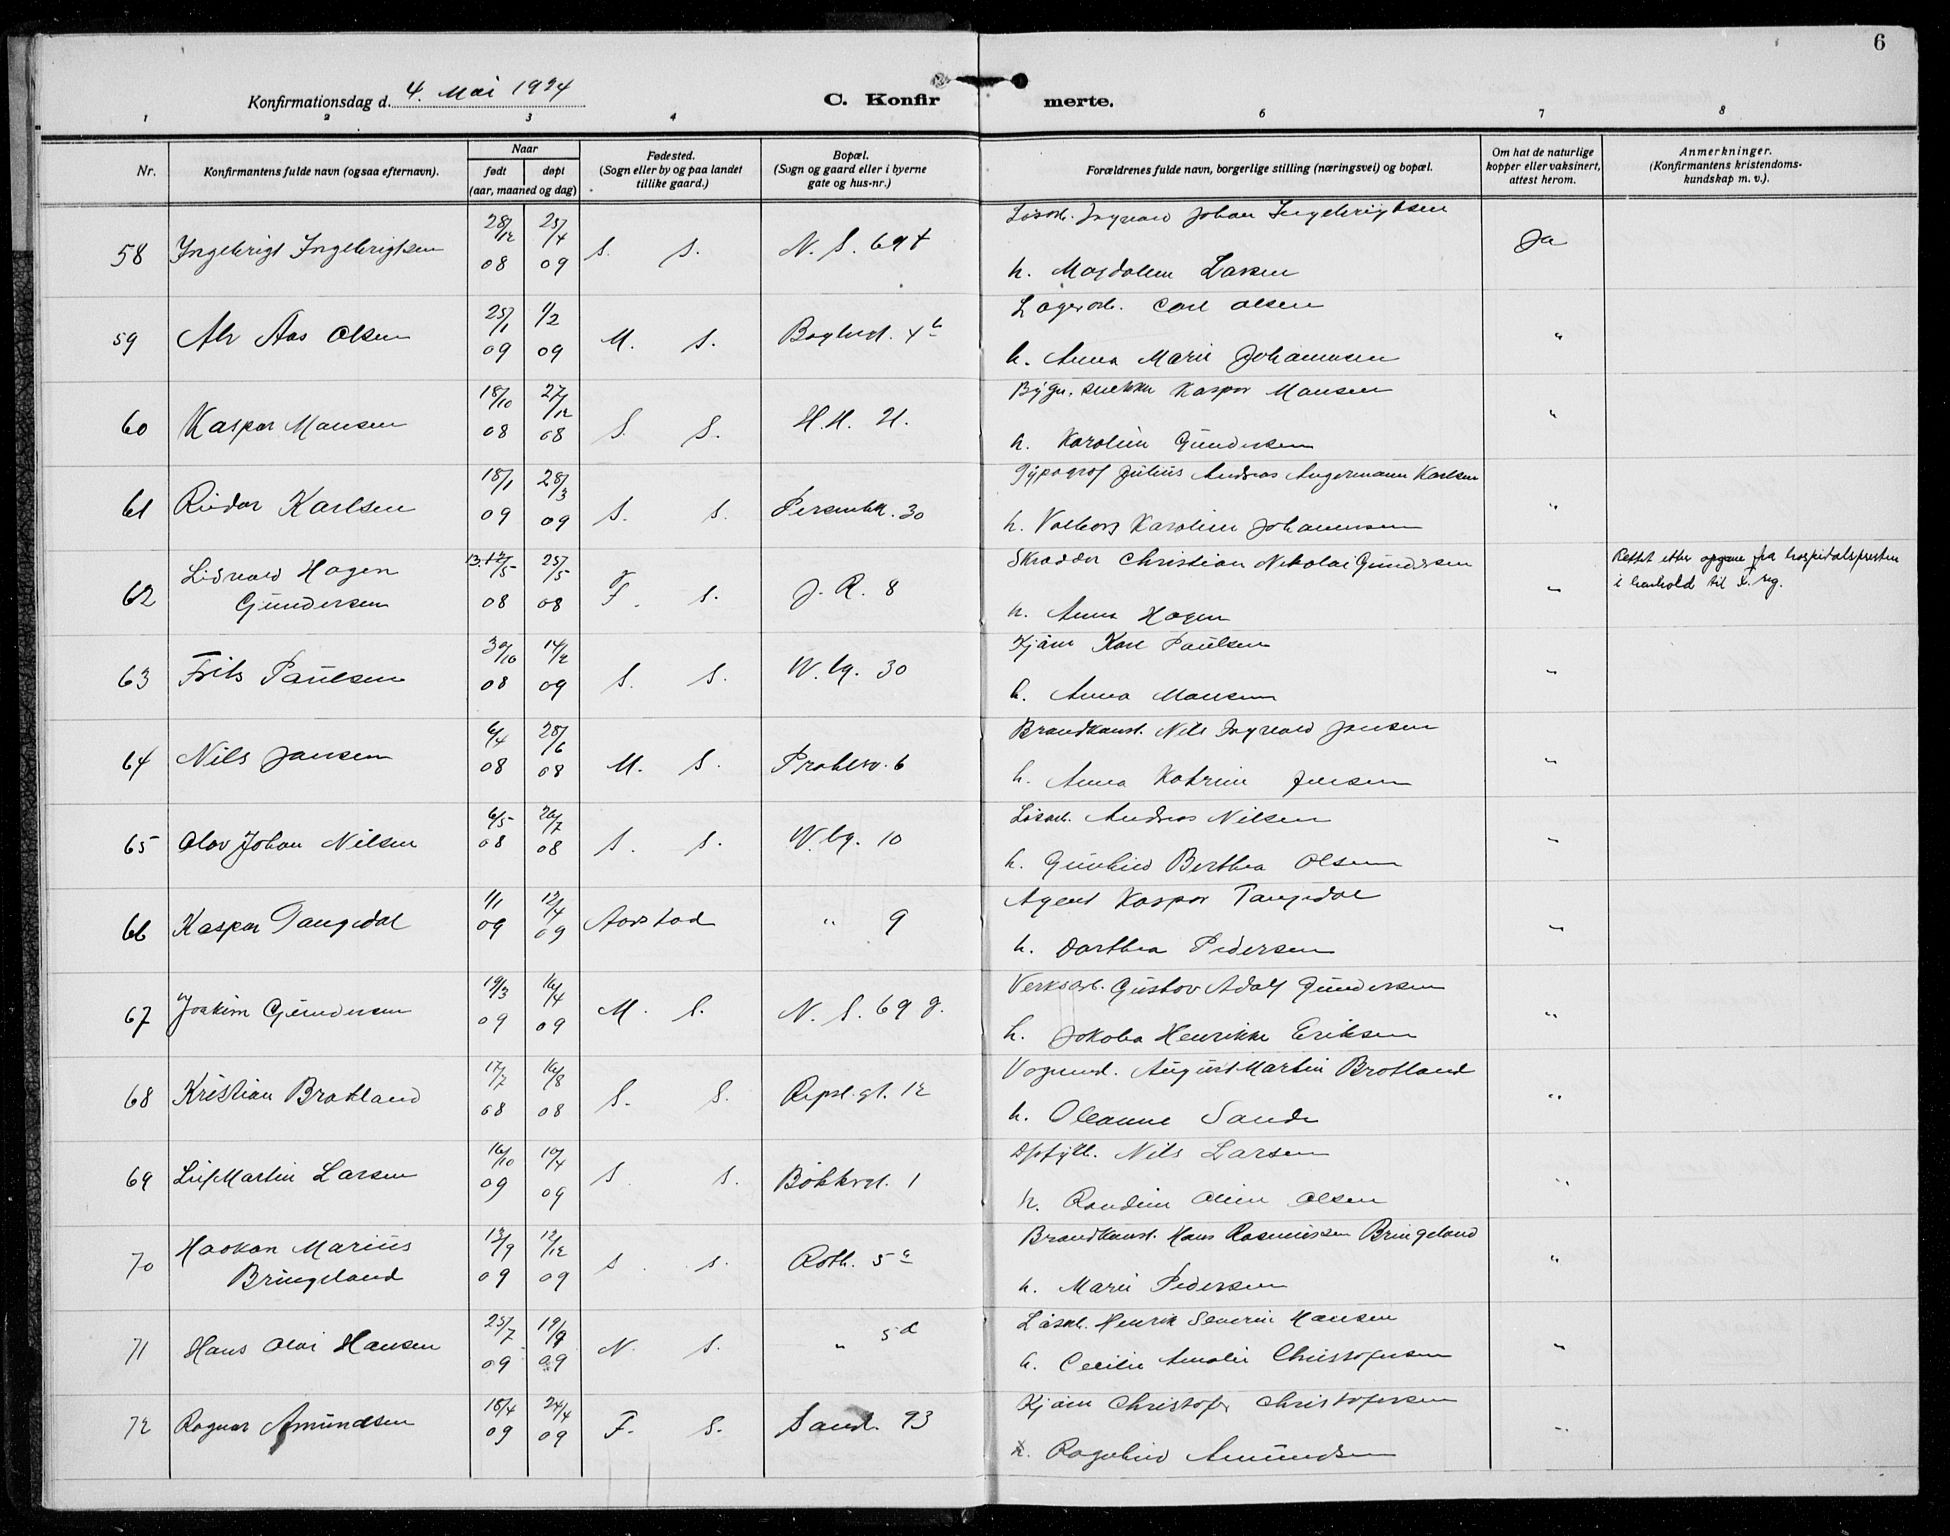 6
Konfirmationsdag d. 4. Mai 1924
C. Konfirmerte.
1 2 3 4 6 7 8
Nr.
Konfirmantens fulde navn (ogsaa efternavn).
Naar
født døpt
(aar, maaned og dag)
Fødested.
(Sogn eller by og paa landet
tillike gaard.)
Bopæl.
(Sogn og gaard eller i byerne
gate og hus-nr.)
Forældrenes fulde navn, borgerlige stilling (næringsvei) og bopæl.
Om hat de naturlige
kopper eller vaksinert,
attest herom.
Anmerkninger.
(Konfirmantens kristendoms-
kundskap m. v.).
58 Ingebrigt Ingebrigtsen 28/12 08 25/4 09 S. S. N. S. 69 Løsarb. Ingvald Johan Ingebrigtsen
h. Magdalene Larsen Ja
59 Alv Aas Olsen 25/1 09 1/2 09 M. S. 4 b Lagerarb. Carl Olsen
h. Anna Marie Johannesen "
60 Kaspar Monsen 18/10 08 27/12 08 S. S. H.H. 21. Bygn. snekker Kaspar Monsen
h. Karoline Gundersen "
61 Reidar Karlsen 18/1 09 28/3 09 S. S. 30 Typograf Julius Andreas Angermann Karlsen
h. Valborg Karoline Johannesen "
62 Lidvald Hagen
Gundersen 13. 12/5 08 25/5 08 F. S. J. R. 8 Skrædder Christian Nikolai Gundersen
h. Anna Hagen " Rettet etter opgave fra hospitalspresten
i henhold til k. reg.
63 Frits Paulsen 30/10 08 14/2 09 S. S. W. bg. 30 Kjøm Karl Paulsen
h. Anna Monsen "
64 Nils Jansen 6/4 08 28/6 08 M. S. Prahlsv. 6 Brandkonst. Nils Ingvald Jansen
h. Anna Katrine Jensen "
65 Olav Johan Nilsen 6/5 08 26/7 08 S. S. W. bg. 10 Løsarb. Andreas Nilsen
h. Gunhild Berthea Olsen "
66 Kaspar Tangedal 1/1 09 12/4 09 Aarstad " 9 Agent Kaspar Tangedal
h. Dorthea Pedersen "
67 Joakim Gundersen 19/3 09 16/4 09 M. S. N. S. 69 g. Verksarb. Gustav Adolf Gundersen
h. Jakoba Henrikke Eriksen "
68 Kristian Bratland 17/7 08 16/8 08 S. S. Repsl.gt. 12 Vognmd. August Martin Bratland
h. Oleanne Sande "
69 Leif Martin Larsen 16/10 09 10/4 09 S. S. 1 Nils Larsen
h. Randine Oline Olsen "
70 Haakon Marius
Bringeland 13/9 09 12/12 09 S. S. Roth. 5 a Brandkonst. Hans Rasmussen Bringeland
h. Marie Pedersen "
71 Hans Olai Hansen 25/7 09 19/9 09 N. S. " 5 d Løsarb. Henrik Severin Hansen
h. Cecilie Amalie Christofersen "
72 Ragnar Amundsen 18/4 09 24/4 09 F. S. Sandv. 93 Kjøm Christofer Christofersen
h. Ragnhild Amundsen "